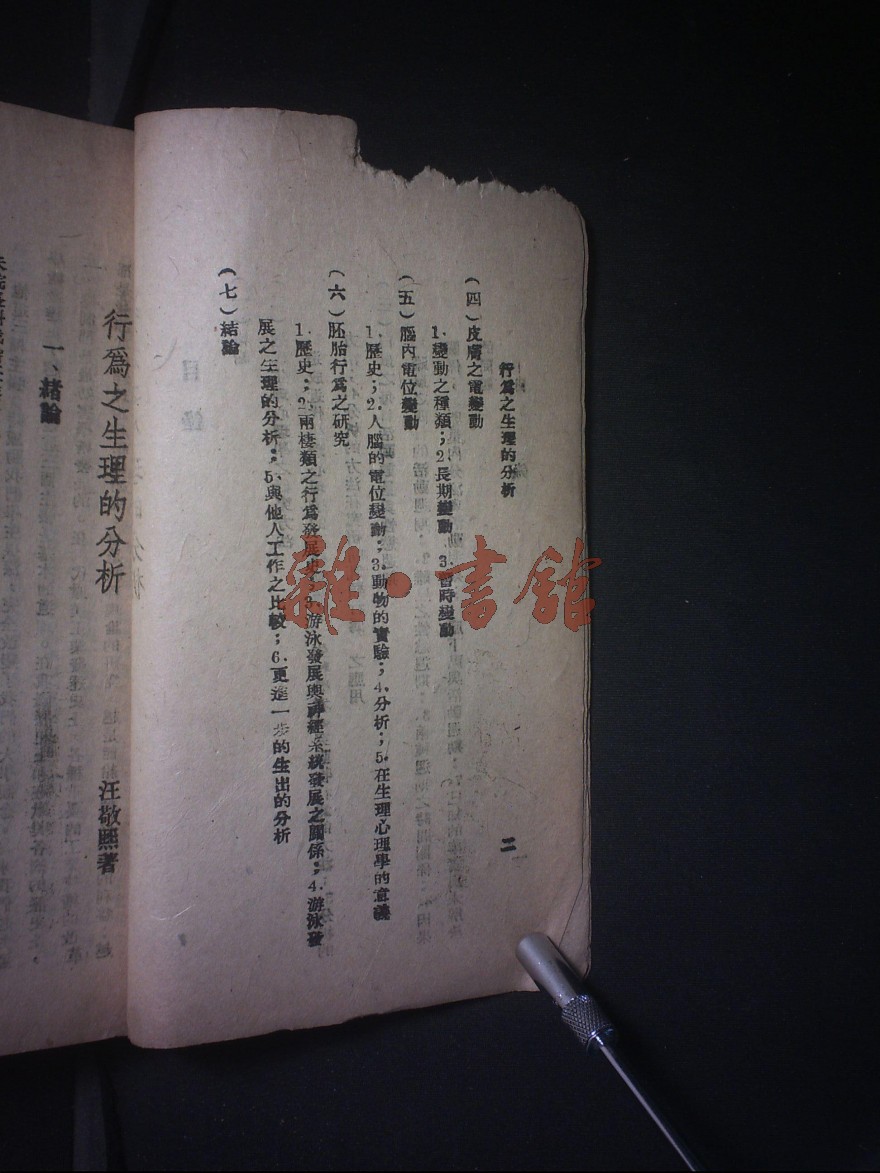 行爲之生理的分析
二
(四)皮膚之電變動
1.變動之種類;2.長期變動 3.暫時變動
(五)腦內電位變動
1.歷史;2.人腦的電位變動;3.動物的實驗;4.分析;5.在生理心理學的意義
(六)胚胎行爲之研究
1.歷史;2.兩棲類之行爲發展史;3.游泳發展與神經系統發展之關係;4.游泳發
展之生理的分析;5.與他人工作之比較;6.更進一步的生出的分析
(七)結論
雜·書館
行爲之生理的分析
汪敬熙著
一、緒論